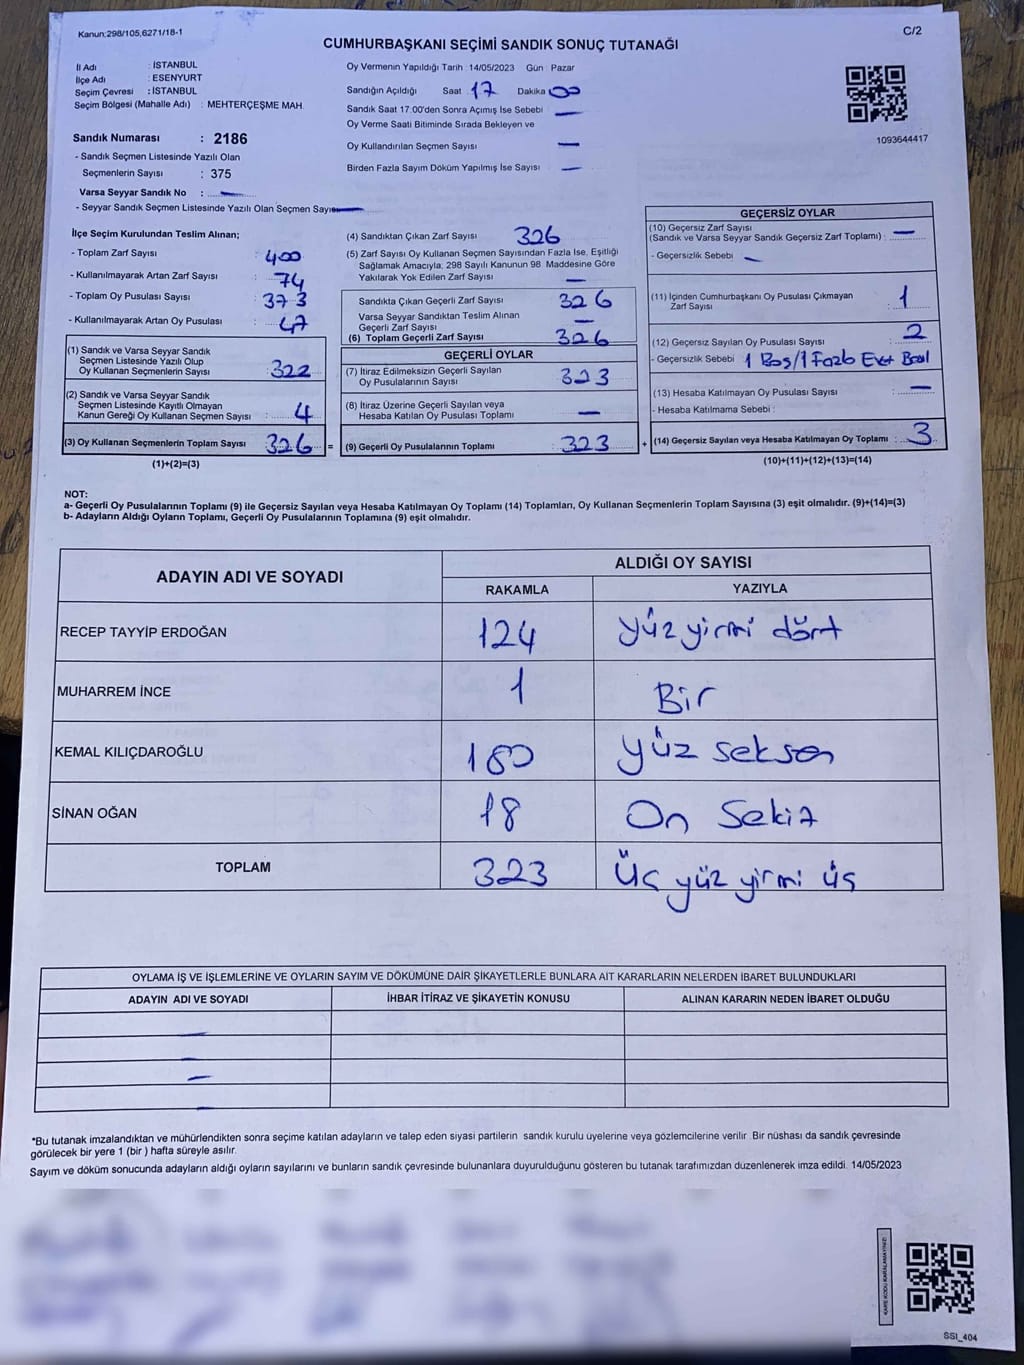 Kanun:298/105,6271/18-1
C/2
CUMHURBAŞKANI SEÇİMİ SANDIK SONUÇ TUTANAĞI
İl Adı : İSTANBUL
İlçe Adı : ESENYURT
Seçim Çevresi : İSTANBUL
Seçim Bölgesi (Mahalle Adı) : MEHTERÇEŞME MAH.
Sandık Numarası : 2186
- Sandık Seçmen Listesinde Yazılı Olan
Seçmenlerin Sayısı : 375
Varsa Seyyar Sandık No : —
- Seyyar Sandık Seçmen Listesinde Yazılı Olan Seçmen Sayısı —
Oy Vermenin Yapıldığı Tarih :14/05/2023 Gün : Pazar
Sandığın Açıldığı Saat 17 Dakika 00
Sandık Saat 17:00'den Sonra Açımış İse Sebebi —
Oy Verme Saati Bitiminde Sırada Bekleyen ve
Oy Kullandırılan Seçmen Sayısı —
Birden Fazla Sayım Döküm Yapılmış İse Sayısı —
1093644417
İlçe Seçim Kurulundan Teslim Alınan;
- Toplam Zarf Sayısı : 400
- Kullanılmayarak Artan Zarf Sayısı : 74
- Toplam Oy Pusulası Sayısı : 373
- Kullanılmayarak Artan Oy Pusulası : 47
(1) Sandık ve Varsa Seyyar Sandık
Seçmen Listesinde Yazılı Olup
Oy Kullanan Seçmenlerin Sayısı : 322
(2) Sandık ve Varsa Seyyar Sandık
Seçmen Listesinde Kayıtlı Olmayan
Kanun Gereği Oy Kullanan Seçmen Sayısı : 4
(3) Oy Kullanan Seçmenlerin Toplam Sayısı : 326 =
(1)+(2)=(3)
(4) Sandıktan Çıkan Zarf Sayısı 326
(5) Zarf Sayısı Oy Kullanan Seçmen Sayısından Fazla İse, Eşitliği
Sağlamak Amacıyla; 298 Sayılı Kanunun 98. Maddesine Göre
Yakılarak Yok Edilen Zarf Sayısı —
Sandıkta Çıkan Geçerli Zarf Sayısı 326
Varsa Seyyar Sandıktan Teslim Alınan
Geçerli Zarf Sayısı —
(6) Toplam Geçerli Zarf Sayısı 326
GEÇERLİ OYLAR
(7) İtiraz Edilmeksizin Geçerli Sayılan
Oy Pusulalarının Sayısı 323
(8) İtiraz Üzerine Geçerli Sayılan veya
Hesaba Katılan Oy Pusulası Toplamı —
(9) Geçerli Oy Pusulalarının Toplamı 323 +
GEÇERSİZ OYLAR
(10) Geçersiz Zarf Sayısı
(Sandık ve Varsa Seyyar Sandık Geçersiz Zarf Toplamı) : —
- Geçersizlik Sebebi —
(11) İçinden Cumhurbaşkanı Oy Pusulası Çıkmayan
Zarf Sayısı 1
(12) Geçersiz Sayılan Oy Pusulası Sayısı : 2
- Geçersizlik Sebebi 1 Boş/1 Fazla Evet
(13) Hesaba Katılmayan Oy Pusulası Sayısı : —
- Hesaba Katılmama Sebebi :
(14) Geçersiz Sayılan veya Hesaba Katılmayan Oy Toplamı : 3
(10)+(11)+(12)+(13)=(14)
NOT:
a- Geçerli Oy Pusulalarının Toplamı (9) ile Geçersiz Sayılan veya Hesaba Katılmayan Oy Toplamı (14) Toplamları, Oy Kullanan Seçmenlerin Toplam Sayısına (3) eşit olmalıdır. (9)+(14)=(3)
b- Adayların Aldığı Oyların Toplamı, Geçerli Oy Pusulalarının Toplamına (9) eşit olmalıdır.
ADAYIN ADI VE SOYADI ALDIĞI OY SAYISI
RAKAMLA YAZIYLA
RECEP TAYYİP ERDOĞAN 124 yüz yirmi dört
MUHARREM İNCE 1 Bir
KEMAL KILIÇDAROĞLU 180 yüz seksen
SİNAN OĞAN 18 On Sekiz
TOPLAM 323 Üç yüz yirmi üç
OYLAMA İŞ VE İŞLEMLERİNE VE OYLARIN SAYIM VE DÖKÜMÜNE DAİR ŞİKAYETLERLE BUNLARA AİT KARARLARIN NELERDEN İBARET BULUNDUKLARI
ADAYIN ADI VE SOYADI İHBAR İTİRAZ VE ŞİKAYETİN KONUSU ALINAN KARARIN NEDEN İBARET OLDUĞU
*Bu tutanak imzalandıktan ve mühürlendikten sonra seçime katılan adayların ve talep eden siyasi partilerin sandık kurulu üyelerine veya gözlemcilerine verilir. Bir nüshası da sandık çevresinde
görülecek bir yere 1 (bir ) hafta süreyle asılır.
Sayım ve döküm sonucunda adayların aldığı oyların sayılarını ve bunların sandık çevresinde bulunanlara duyurulduğunu gösteren bu tutanak tarafımızdan düzenlenerek imza edildi. 14/05/2023
KARE KODU KARALAMAYINIZ!
SSI_404